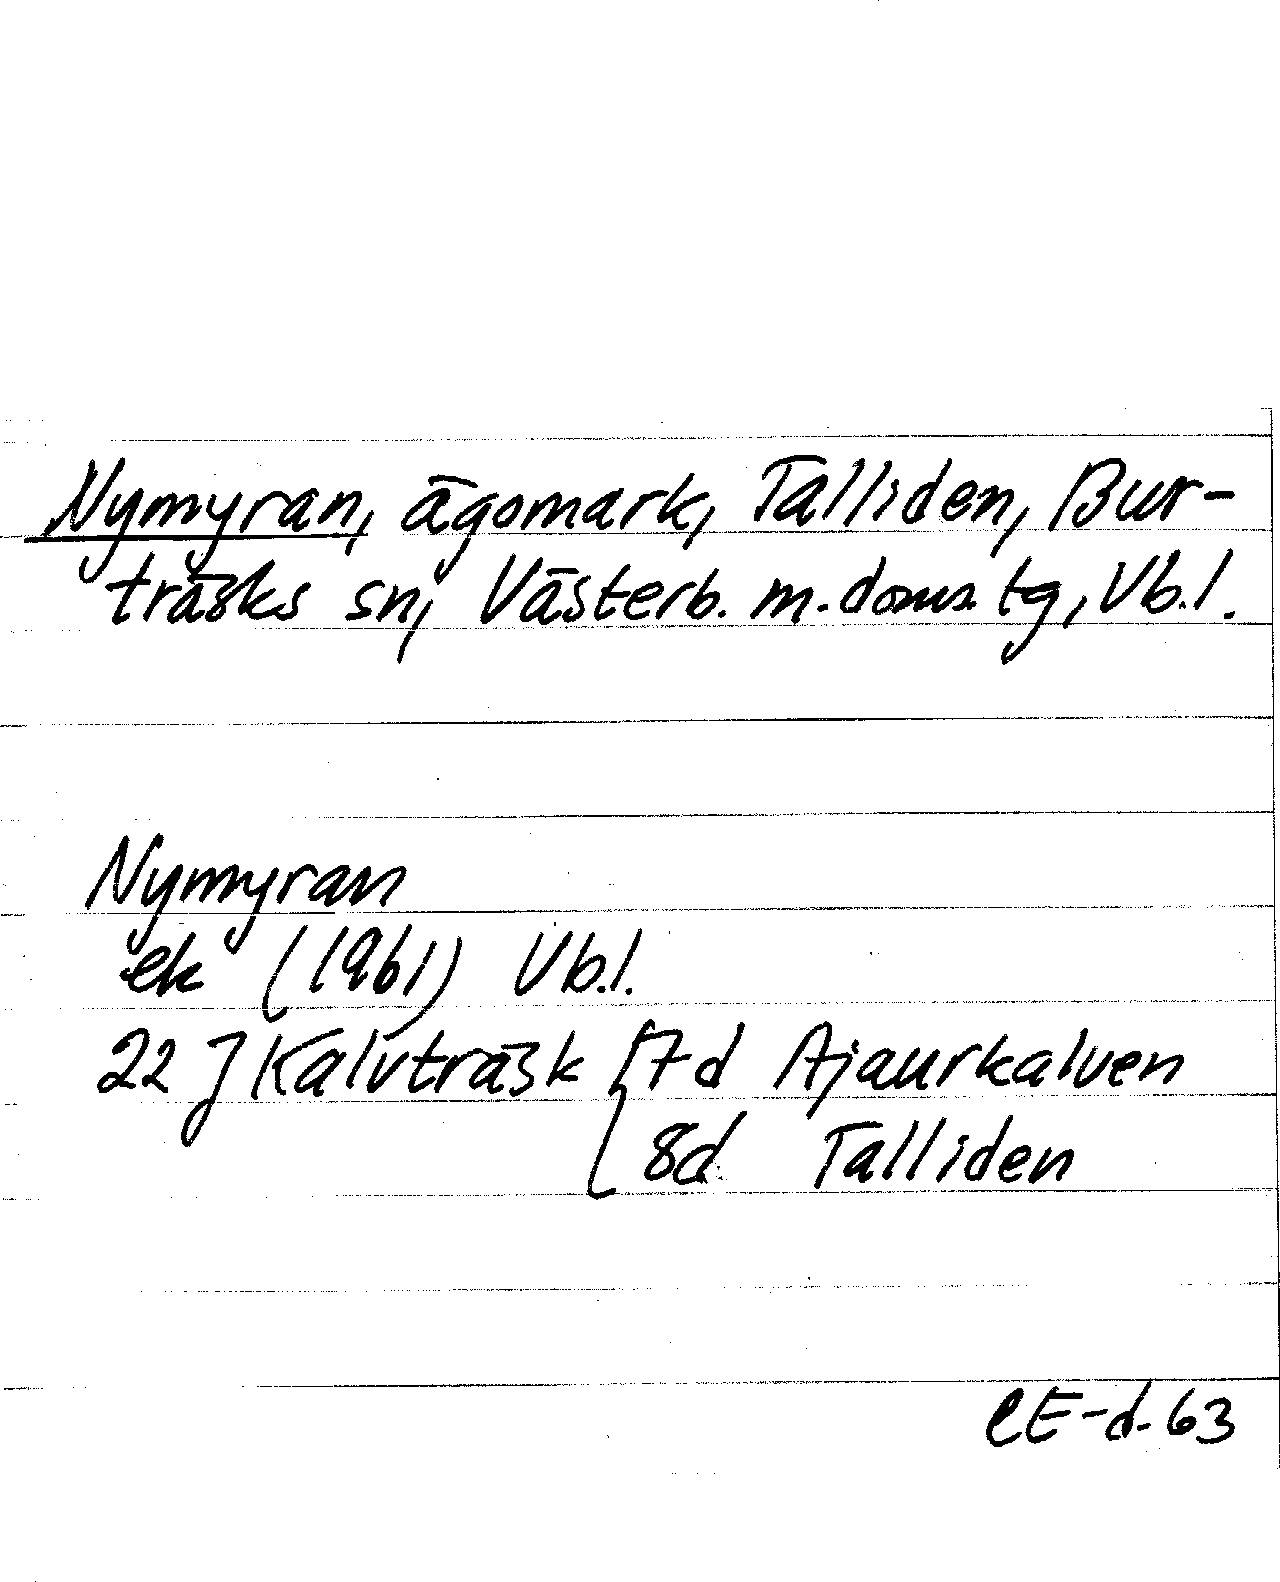 Nymyran, ägomark, Talliden, Bur-
träsks sn, Västerb. m. doms. tg, Vb.l.
Nymyran
ek (1961) Vb.l.
22 J Kalvträsk 7d Ajaurkalven
8d Talliden
CE-d-63